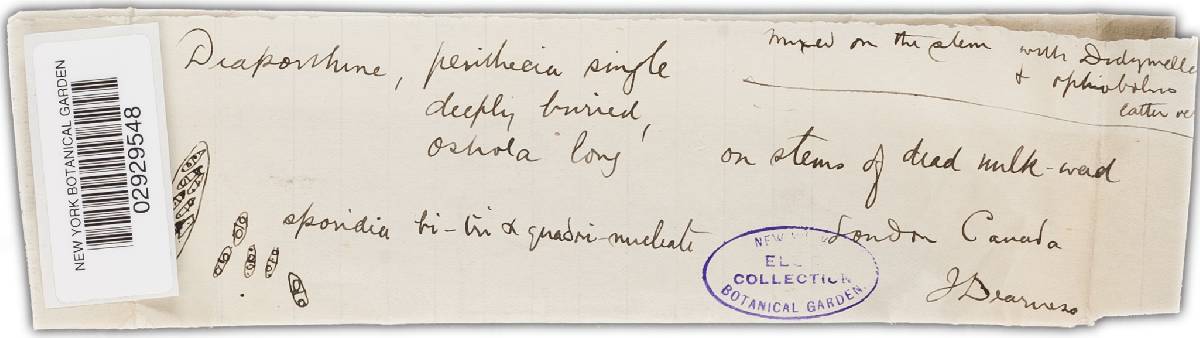 NEW YORK BOTANICAL GARDEN
02929548
Diaporthine, perithecia single
deeply buried,
ostiola long
mixed on the stem with Didymella
& ophiobolus
latter
on stems of dead milk-weed
sporidia bi-tri & quadri-nucleate
London Canada
J Dearness
NEW
COLLECTION
BOTANICAL GARDEN